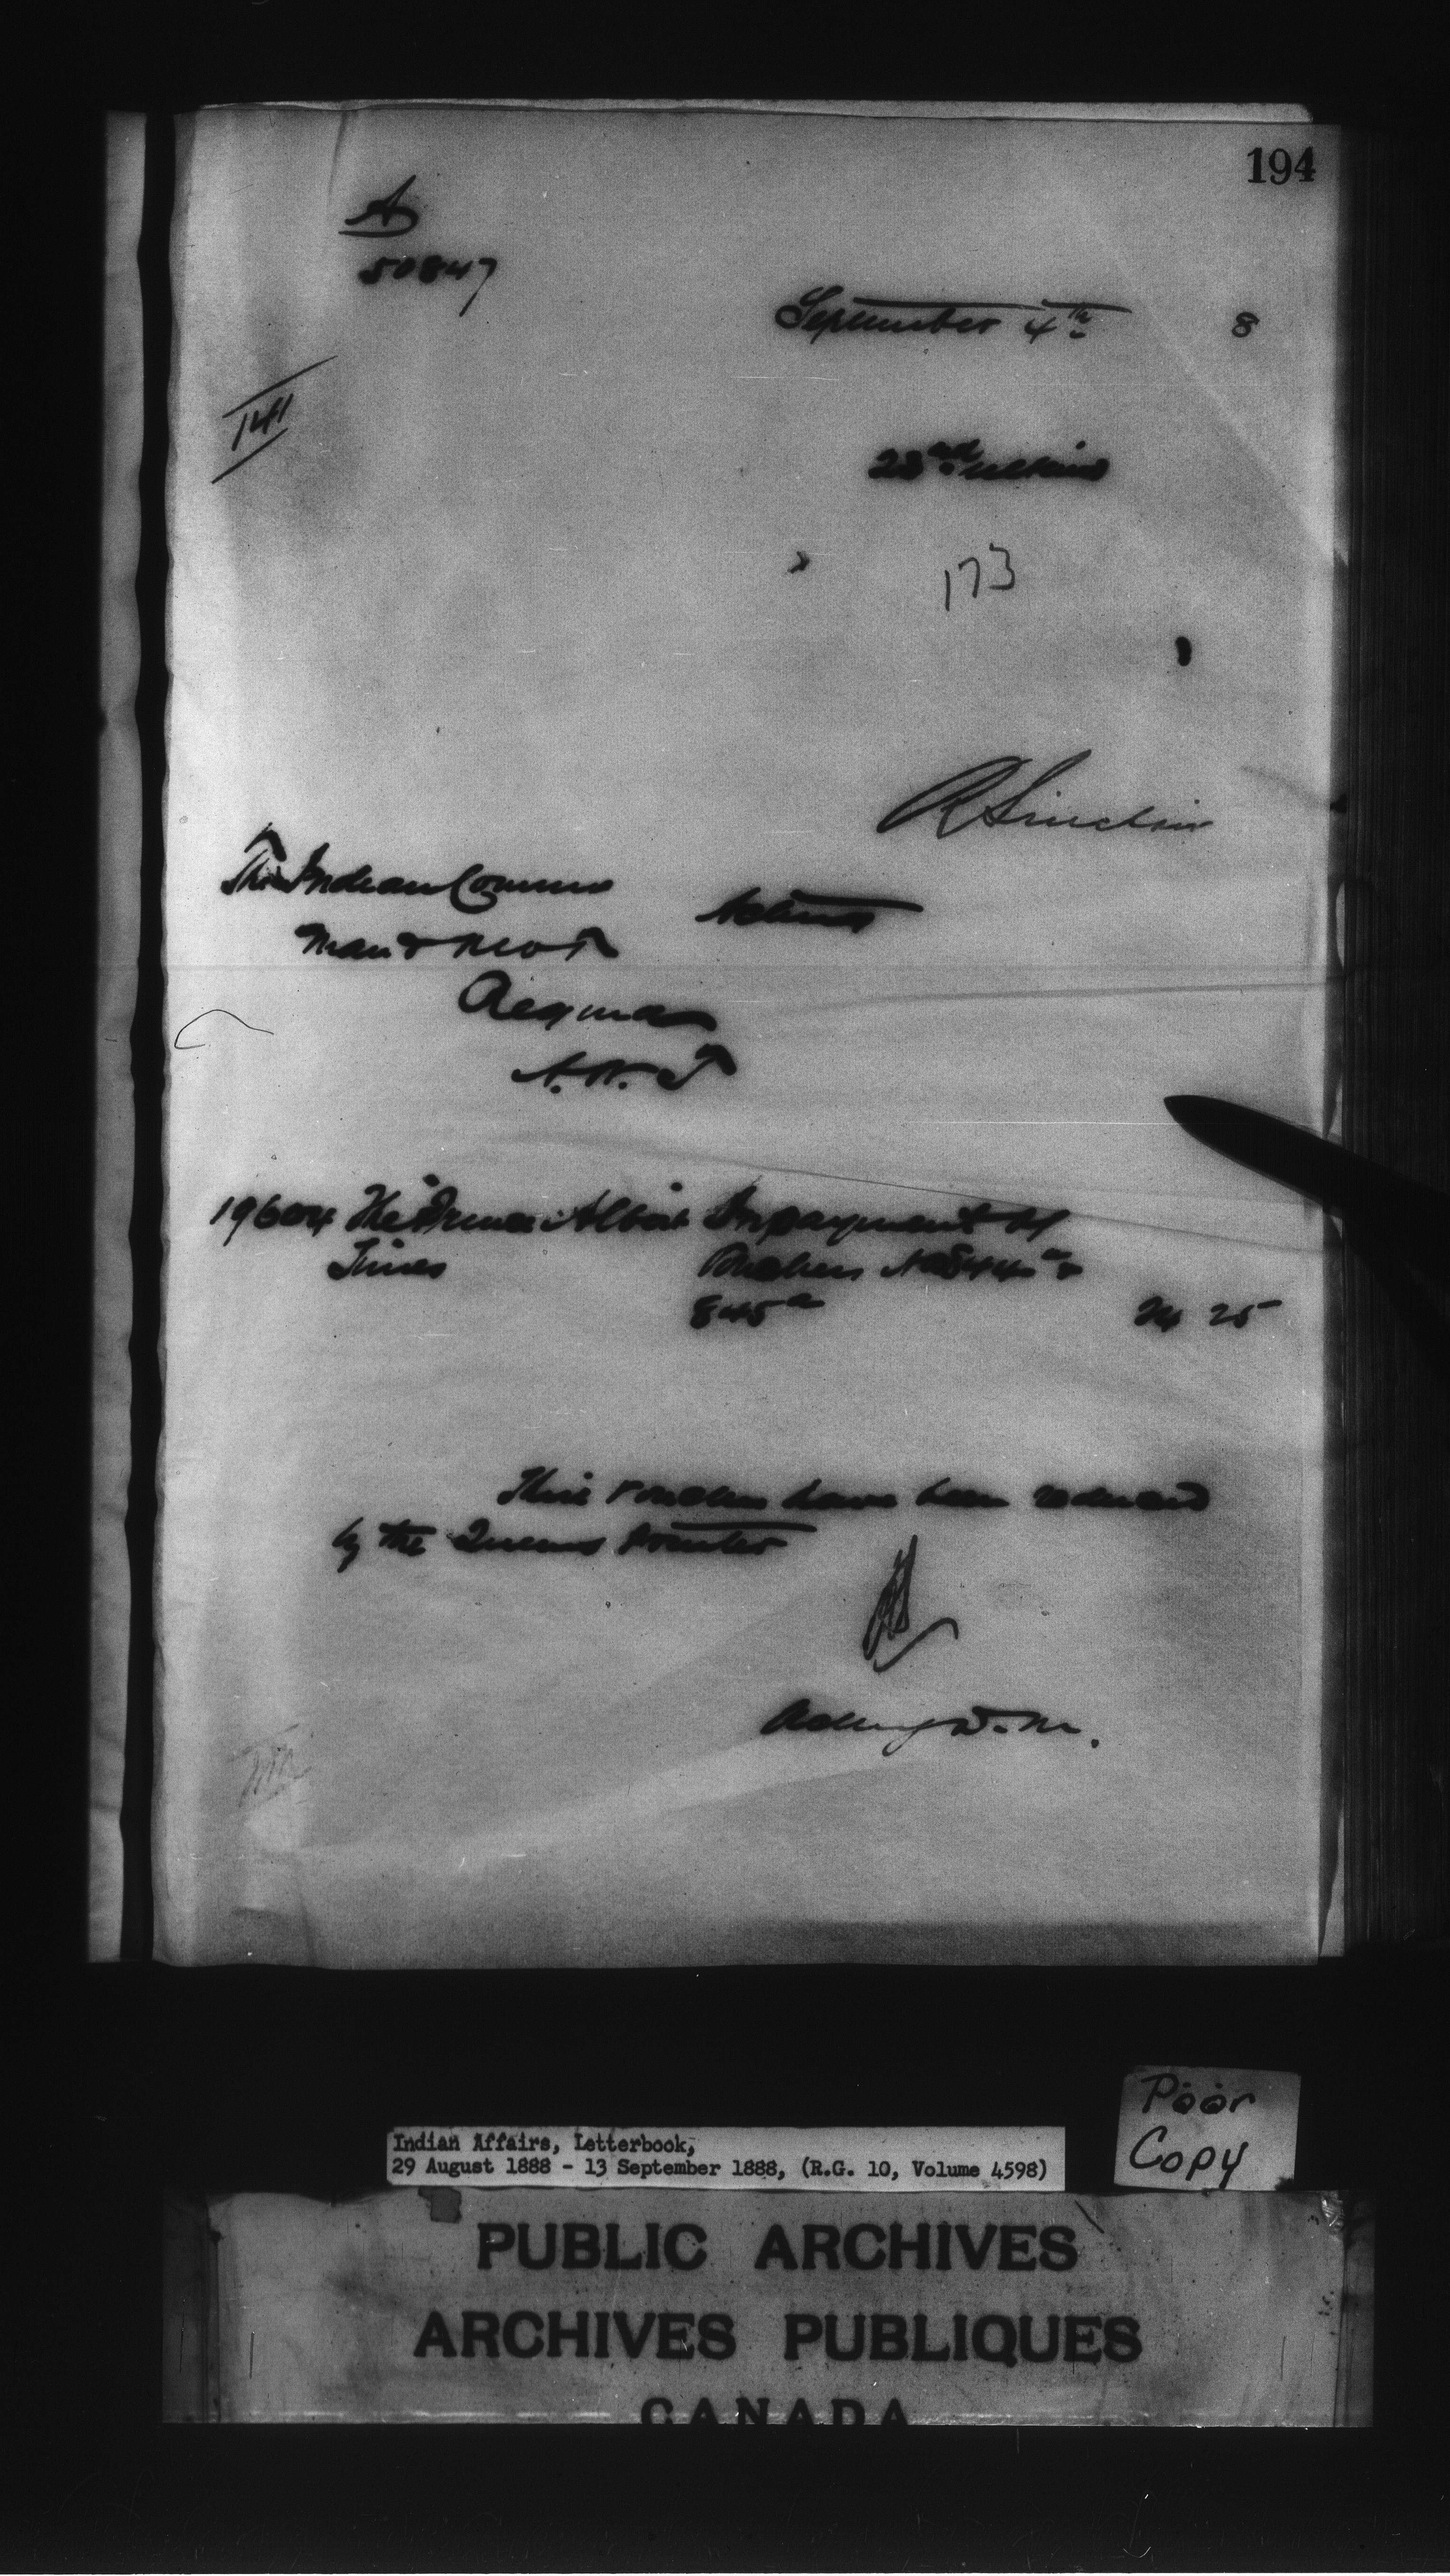 194
A
50847
September 4th 8
141
23rd ultimo
173
R Sinclair
The Indian Commr
Acting
Man & N.W.T
Regina
N.W.T
19604 The Prince Albert In payment of
Times Vouchers No 844a &
845a 24 25
These vouchers have been reduced
by the Queens Printer
Acting D. M.
Poor
Copy
Indian Affairs, Letterbook,
29 August 1888 - 13 September 1888, (R.G. 10, Volume 4598)
PUBLIC ARCHIVES
ARCHIVES PUBLIQUES
CANADA